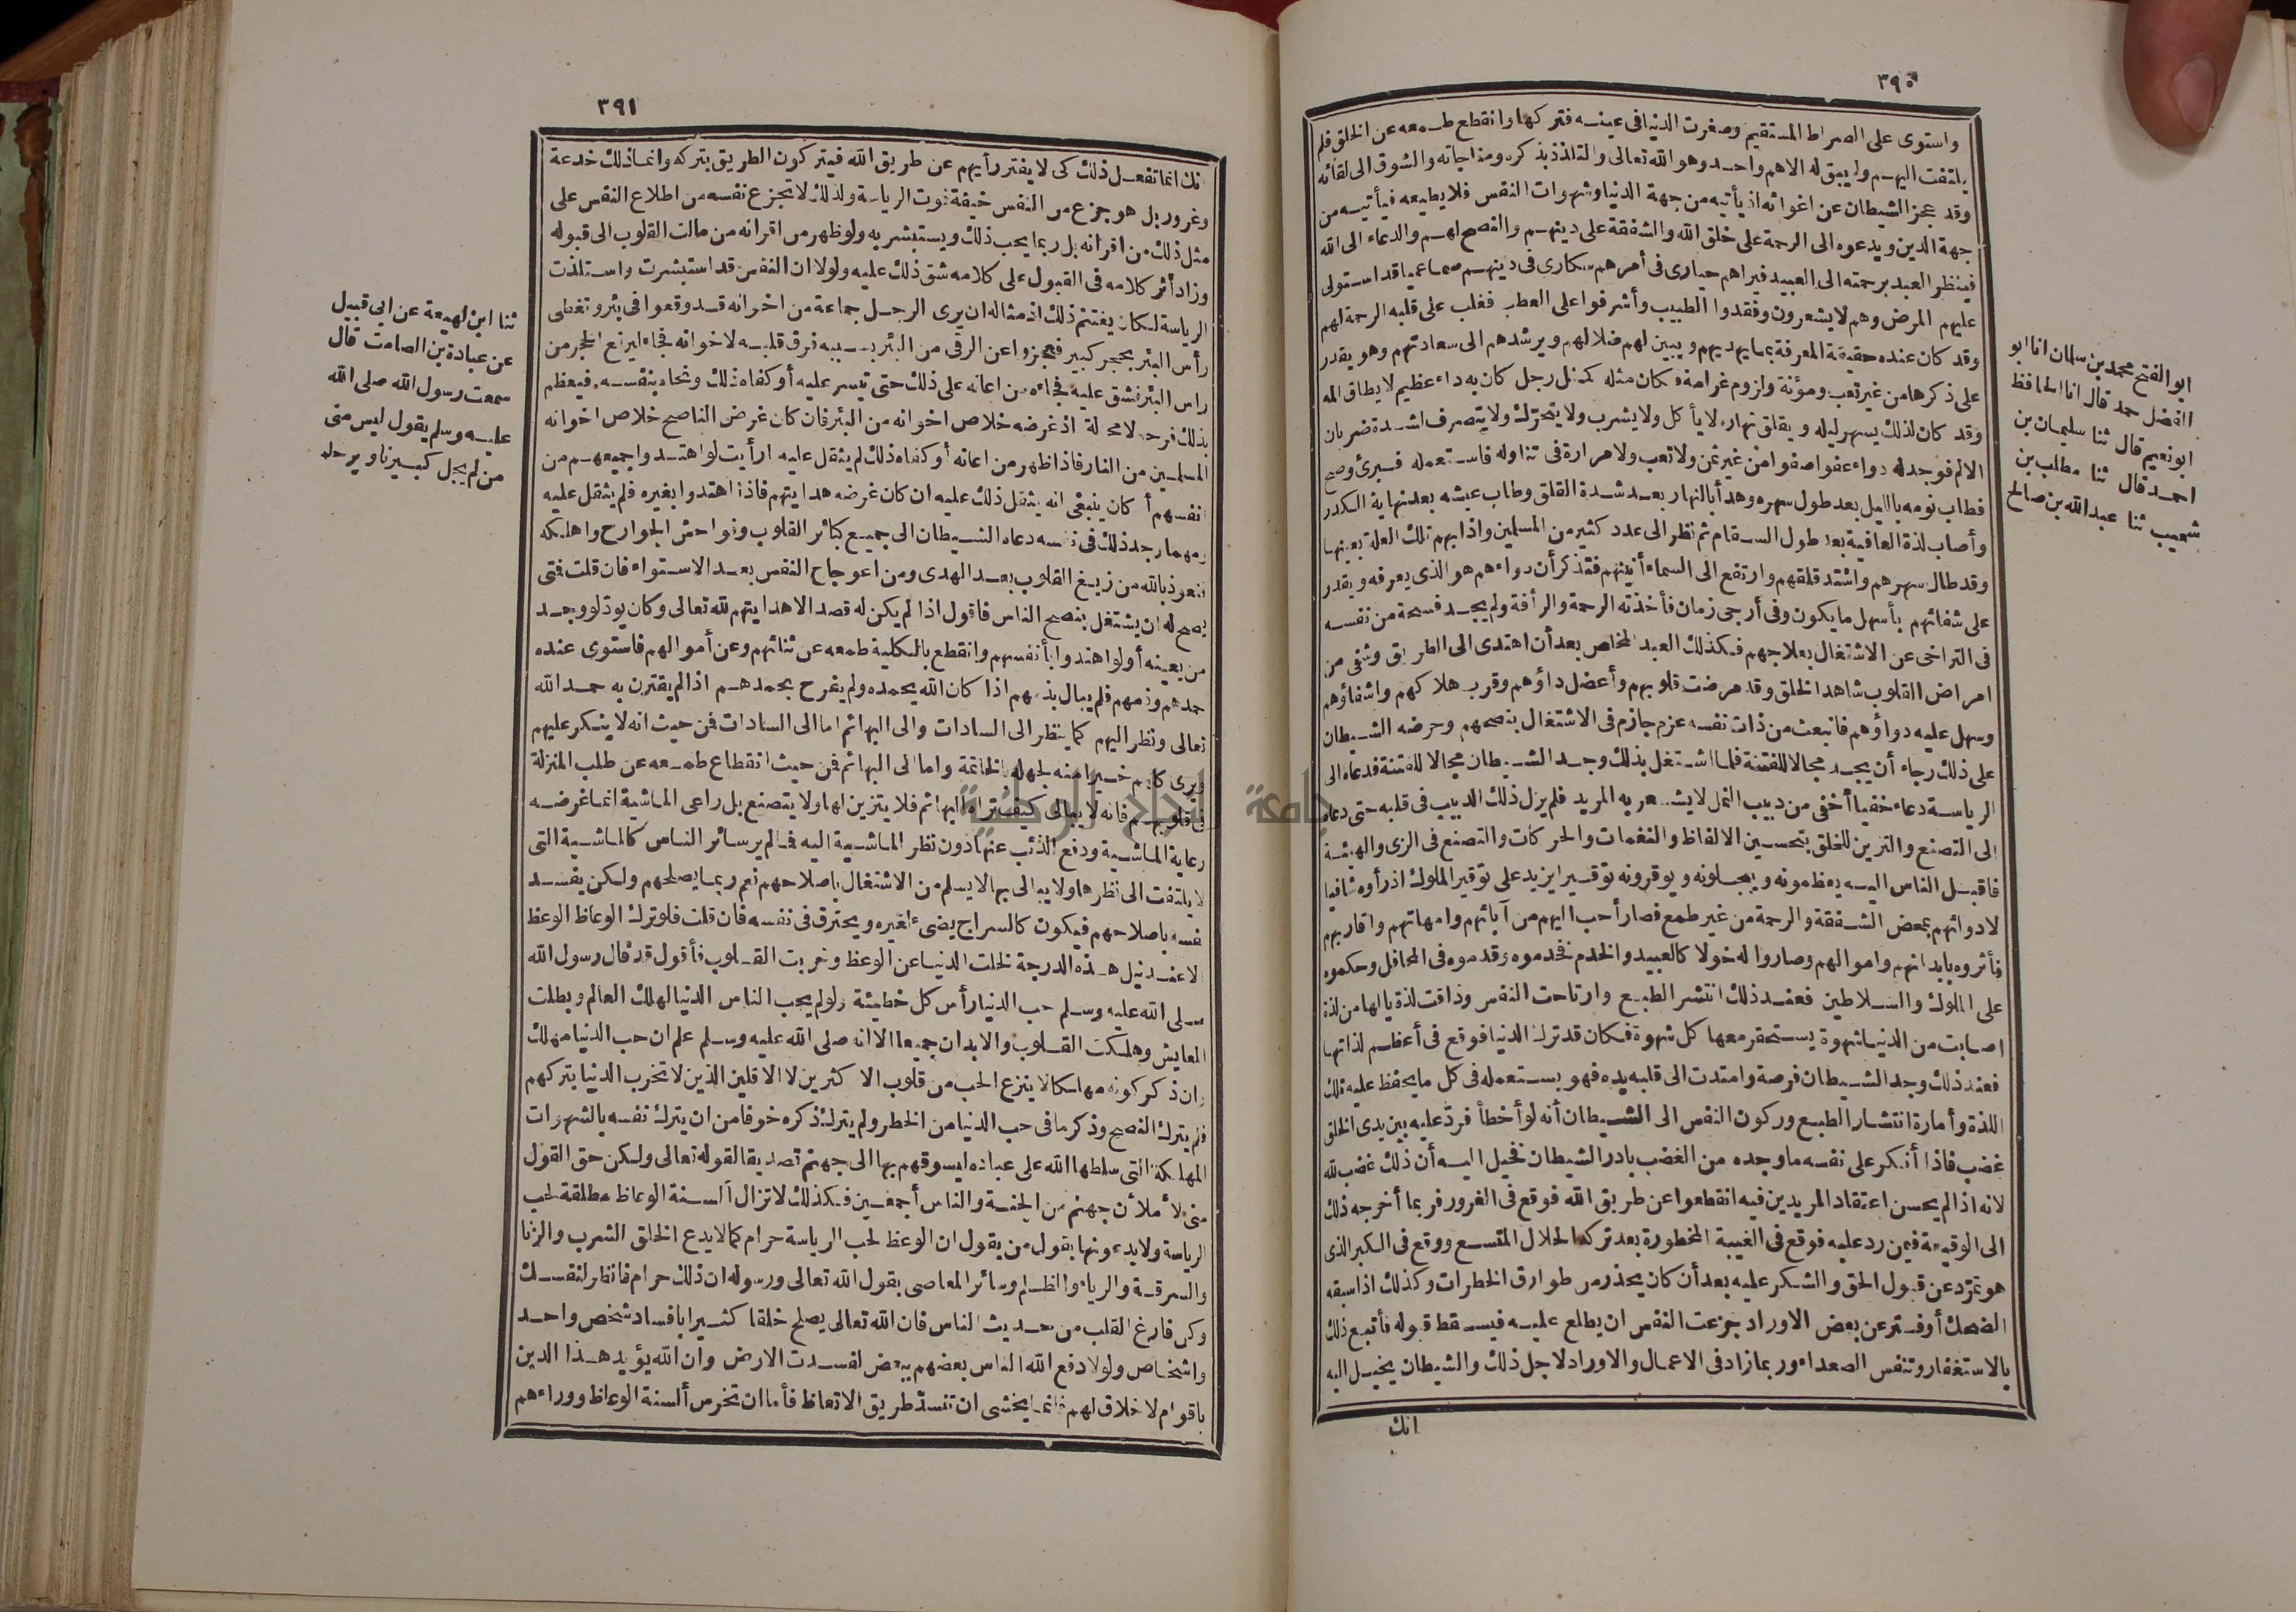 ٣٩٠
واستوى على الصراط المستقيم وصغرت الدنيا فى عينه فتركها وانقطع طمعه عن الخلق فلم
يلتفت اليهم ولم يبق له الاهم واحد وهو الله تعالى والتلذذ بذكره ومناجاته والشوق الى لقائه
وقد عجز الشيطان عن اغوائه اذ يأتيه من جهة الدنيا وشهوات النفس فلا يطيعه فيأتيه من
جهة الدين ويدعوه الى الرحمة على خلق الله والشفقة على دينهم والنصح لهم والدعاء الى الله
فينظر العبد برحمته الى العبيد فيراهم حيارى فى أمرهم سكارى فى دينهم صما عميا قد استولى
عليهم المرض وهم لا يشعرون وفقدوا الطبيب وأشرفوا على العطب فغلب على قلبه الرحمة لهم
وقد كان عنده حقيقة المعرفة بما يهديهم ويبين لهم ضلالهم ويرشدهم الى سعادتهم وهو يقدر
على ذكرها من غير تعب ومؤنة ولزوم غرامة فكان مثله كمثل رجل كان به داء عظيم لا يطاق المه
وقد كان لذلك يسهر ليله ويقلق نهاره لا يأكل ولا يشرب ولا يتحرك ولا يتصرف لشدة ضربان
الالم فوجد له دواء عفوا صفوا من غير ثمن ولا تعب ولا مرارة فى تناوله فاستعمله فبرئ وصح
فطاب نومه بالليل بعد طول سهره وهدأ بالنهار بعد شدة القلق وطاب عيشه بعد نهاية الكدر
وأصاب لذة العافية بعد طول السقام ثم نظر الى عدد كثير من المسلمين واذا بهم تلك العلة بعينها
وقد طال سهرهم واشتد قلقهم وارتفع الى السماء أنينهم فتذكر أن دواءهم هو الذى يعرفه ويقدر
على شفائهم بأسهل ما يكون وفى أرجى زمان فأخذته الرحمة والرأفة ولم يجد فسحة من نفسه
فى التراخى عن الاشتغال بعلاجهم فكذلك العبد المخلص بعد أن اهتدى الى الطريق وشفى من
امراض القلوب شاهد الخلق وقد مرضت قلوبهم وأعضل داؤهم وقرب هلاكهم واشفاؤهم
وسهل عليه دواؤهم فانبعث من ذات نفسه عزم جازم فى الاشتغال بنصحهم وحرضه الشيطان
على ذلك رجاء أن يجد مجالا للفتنة فلما اشتغل بذلك وجد الشيطان مجالا للفتنة فدعاه الى
الرياسة دعاء خفيا أخفى من دبيب النمل لا يشعر به المريد فلم يزل ذلك الدبيب فى قلبه حتى دعاه
الى التصنع والتزين للخلق بتحسين الالفاظ والنغمات والحركات والتصنع فى الزى والهيئة
فاقبل الناس اليه يعظمونه ويبجلونه ويوقرونه توقيرا يزيد على توقير الملوك اذ رأوه شافيا
لادوائهم بمحض الشفقة والرحمة من غير طمع فصار أحب اليهم من آبائهم وامهاتهم واقاربهم
فأثروه بابدانهم واموالهم وصاروا له خولا كالعبيد والخدم فخدموه وقدموه فى المحافل وحكموه
على الملوك والسلاطين فعند ذلك انتشر الطبع وارتاحت النفس وذاقت لذة يالها من لذة
اصابت من الدنيا شهوة يستحقر معها كل شهوة فكان قد ترك الدنيا فوقع فى أعظم لذاتها
فعند ذلك وجد الشيطان فرصة وامتدت الى قلبه يده فهو يستعمله فى كل ما يحفظ عليه تلك
اللذة وأمارة انتشار الطبع وركون النفس الى الشيطان أنه لو أخطأ فرد عليه بين يدى الخلق
غضب فاذا أنكر على نفسه ما وجده من الغضب بادر الشيطان فخيل اليه أن ذلك غضب لله
لانه اذا لم يحسن اعتقاد المريدين فيه انقطعوا عن طريق الله فوقع فى الغرور فربما أخرجه ذلك
الى الوقيعة فيمن رد عليه فوقع فى الغيبة المحظورة بعد تركه الحلال المتسع ووقع فى الكبر الذى
هو تمرّد عن قبول الحق والشكر عليه بعد أن كان يحذر من طوارق الخطرات وكذلك اذا سبقه
الضحك أو فتر عن بعض الاوراد جزعت النفس ان يطلع عليه فيسقط قبوله فأتبع ذلك
بالاستغفار وتنفس الصعداء وربما زاد فى الاعمال والاوراد لاجل ذلك والشيطان يخيل اليه
انك
ابو الفتح محمد بن سلمان انا ابو
الفضل حمد قال انا الحافظ
ابو نعيم قال ثنا سليمان بن
احمد قال ثنا مطلب بن
شعيب ثنا عبد الله بن صالح
٣٩١
انك انما تفعل ذلك كى لا يفتر رأيهم عن طريق الله فيتركون الطريق بتركه وانما ذلك خدعة
وغرور بل هو جزع من النفس خيفة فوت الرياسة ولذلك لا تجزع نفسه من اطلاع النفس على
مثل ذلك من اقرانه بل ربما يحب ذلك ويستبشر به ولو ظهر من اقرانه من مالت القلوب الى قبوله
وزاد أثر كلامه فى القبول على كلامه شق ذلك عليه ولولا ان النفس قد استبشرت واستلذت
الرياسة لكان يغتنم ذلك اذ مثاله ان يرى الرجل جماعة من اخوانه قد وقعوا فى بئر وتغطى
رأس البئر بحجر كبير فعجزوا عن الرقى من البئر بسببه فرق قلبه لاخوانه فجاء ليرفع الحجر من
راس البئر فشق عليه فجاءه من اعانه على ذلك حتى تيسر عليه أو كفاه ذلك ونحاه بنفسه فيعظم
بذلك فرحه لا محالة اذ غرضه خلاص اخوانه من البئر فان كان غرض الناصح خلاص اخوانه
المسلمين من النار فاذا ظهر من اعانه أو كفاه ذلك لم يثقل عليه ارأيت لو اهتدوا جميعهم من
انفسهم أكان ينبغى انه يثقل ذلك عليه ان كان غرضه هدايتهم فاذا اهتدوا بغيره فلم يثقل عليه
ومهما وجد ذلك فى نفسه دعاه الشيطان الى جميع كبائر القلوب وفواحش الجوارح واهلكه
فنعوذ بالله من زيغ القلوب بعد الهدى ومن اعوجاج النفس بعد الاستواء فان قلت فمتى
يصح له ان يشتغل بنصح الناس فاقول اذا لم يكن له قصد الا هدايتهم لله تعالى وكان يود لو وجد
من يعينه أو لو اهتدوا بأنفسهم وانقطع بالكلية طمعه عن ثنائهم وعن أموالهم فاستوى عنده
حمدهم وذمهم فلم يبال بذمهم اذا كان الله يحمده ولم يفرح بحمدهم اذا لم يقترن به حمد الله
تعالى ونظر اليهم كما ينظر الى السادات والى البهائم اما الى السادات فمن حيث انه لا يتكبر عليهم
ويرى كلهم خيرا منه لجهله بالخاتمة واما الى البهائم فمن حيث انقطاع طمعه عن طلب المنزلة
فى قلوبهم فانه لا يبالى كيف تراه البهائم فلا يتزين لها ولا يتصنع بل راعى الماشية انما غرضه
رعاية الماشية ودفع الذئب عنها دون نظر الماشية اليه فما لم ير سائر الناس كالماشية التى
لا يلتفت الى نظرها ولا يبالى بها لا يسلم من الاشتغال باصلاحهم نعم ربما يصلحهم ولكن يفسد
نفسه باصلاحهم فيكون كالسراج يضىء لغيره ويحترق فى نفسه فان قلت فلو ترك الوعاظ الوعظ
الا عند نيل هذه الدرجة لخلت الدنيا عن الوعظ وخربت القلوب فأقول قد قال رسول الله
صلى الله عليه وسلم حب الدنيا رأس كل خطيئة ولو لم يحب الناس الدنيا لهلك العالم وبطلت
المعايش وهلكت القلوب والابدان جميعا الا انه صلى الله عليه وسلم علم ان حب الدنيا مهلك
وان ذكر كونه مهلكا لا ينزع الحب من قلوب الاكثرين لا الاقلين الذين لا تخرب الدنيا بتركهم
فلم يترك النصح وذكر ما فى حب الدنيا من الخطر ولم يترك ذكره خوفا من ان يترك نفسه بالشهوات
المهلكة التى سلطها الله على عباده ليسوقهم بها الى جهنم تصديقا لقوله تعالى ولكن حق القول
منى لأملأن جهنم من الجنة والناس أجمعين فكذلك لا تزال ألسنة الوعاظ مطلقة لحب
الرياسة ولا يدعونها بقول من يقول ان الوعظ لحب الرياسة حرام كما لا يدع الخلق الشرب والزنا
والسرقة والرياء والظلم وسائر المعاصى بقول الله تعالى ورسوله ان ذلك حرام فانظر لنفسك
وكن فارغ القلب من حديث الناس فان الله تعالى يصلح خلقا كثيرا بافساد شخص واحد
واشخاص ولولا دفع الله الناس بعضهم ببعض لفسدت الارض وان الله يؤيد هذا الدين
باقوام لا خلاق لهم فانما يخشى ان تنسدّ طريق الاتعاظ فأما ان تخرس ألسنة الوعاظ ووراءهم
ثنا ابن لهيعة عن ابى قبيل
عن عبادة بن الصامت قال
سمعت رسول الله صلى الله
عليه وسلم يقول ليس منى
من لم يجل كبيرنا ويرحم
جامعة النجاح الوطنية